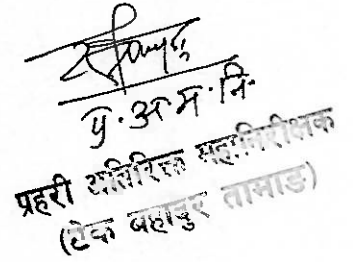 प्र.अ.म.नि.
प्रहरी अतिरिक्त महानिरीक्षक
(टेक बहादुर तामाङ)